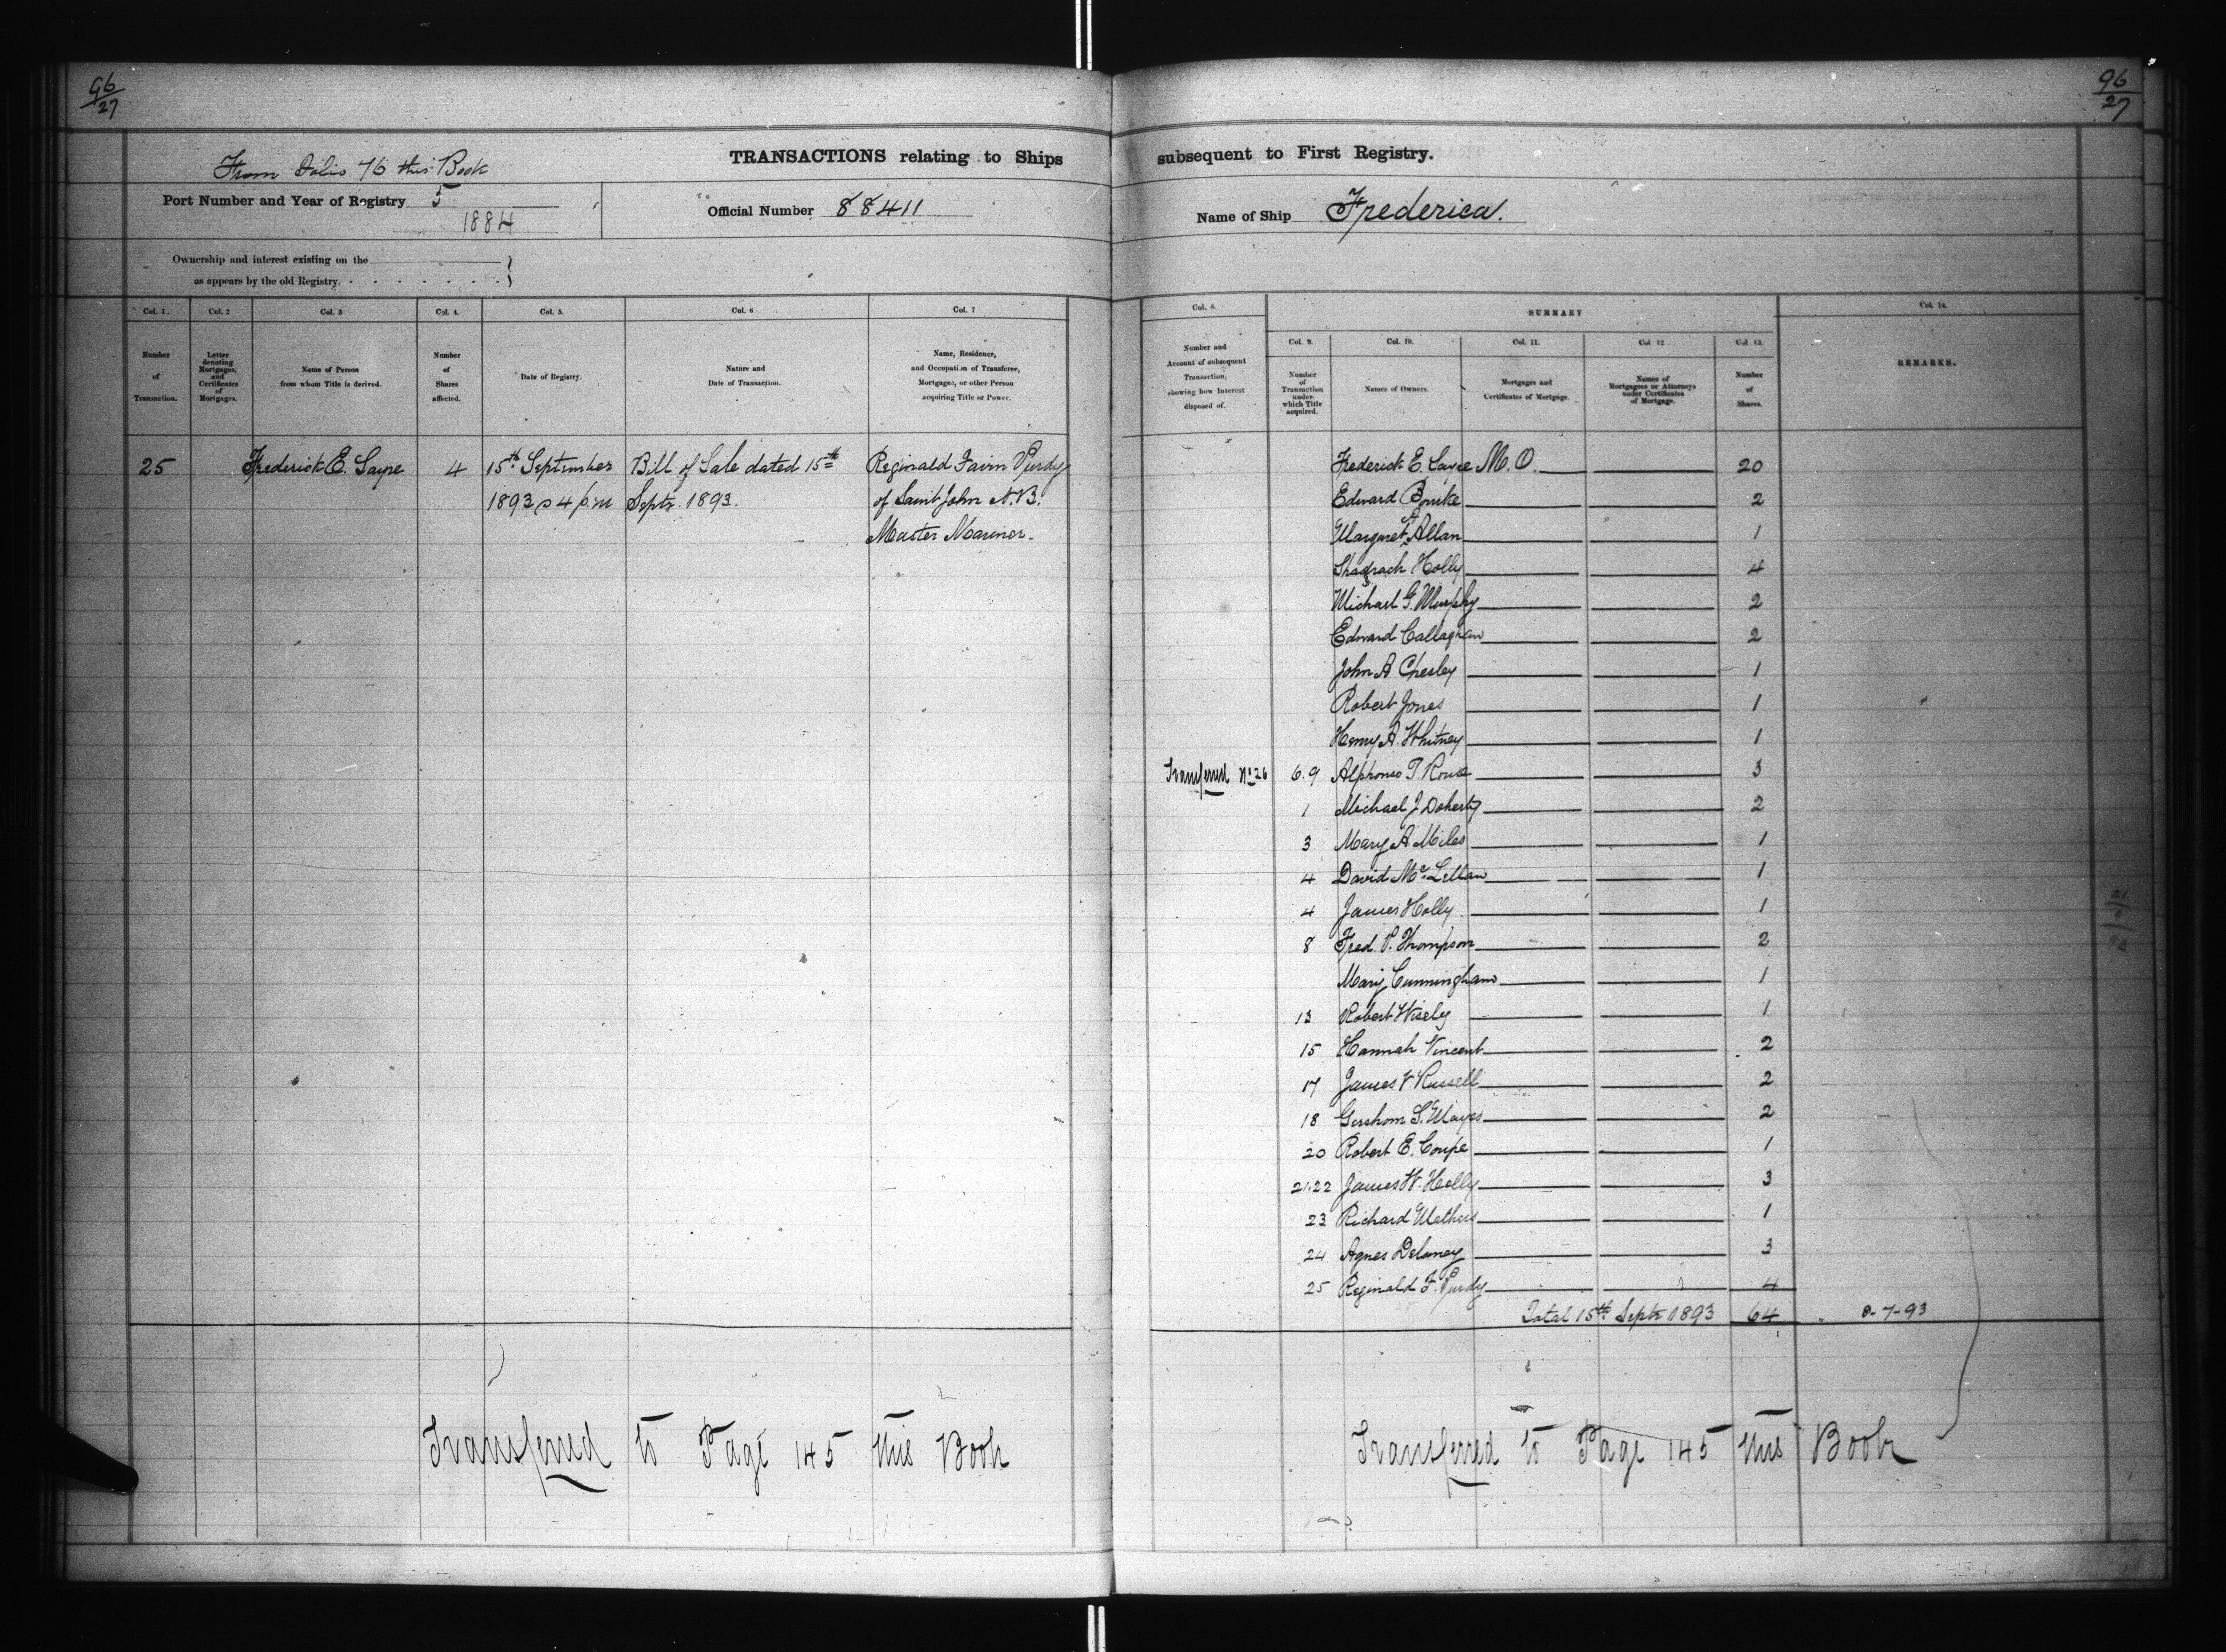 96
27
From Folio 76 this Book
TRANSACTIONS relating to Ships
Port Number and Year of Registry 5
1884
Official Number 88411
Ownership and interest existing on the
as appears by the old Registry.
Col. 1.
Col. 2
Col. 3
Col. 4.
Col. 5.
Col. 6
Col. 7
Number
of
Transaction.
Letter
denoting
Mortgages,
and
Certificates
of
Mortgages.
Name of Person
from whom Title is derived.
Number
of
Shares
affected.
Date of Registry.
Nature and
Date of Transaction.
Name, Residence,
and Occupation of Transferee,
Mortgagee, or other Person
acquiring Title or Power.
25 Frederick E. Sayre 4 15th September Bill of Sale dated 15th Reginald Purdy
1893 @ 4 p.m Septr. 1893. of Saint John N.B.
Master Mariner.
Transferred to Page 145 this Book
96
27
subsequent to First Registry.
Name of Ship Frederica.
Col. 8.
Number and
Account of subsequent
Transaction,
showing how Interest
disposed of.
SUMMARY
Col. 9.
Col. 10.
Col. 11.
Col. 12
Col. 13.
Number
of
Transaction
under
which Title
acquired.
Names of Owners.
Mortgages and
Certificates of Mortgage.
Names of
Mortgagees or Attorneys
under Certificates
of Mortgage.
Number
of
Shares.
Col. 14.
REMARKS.
Frederick E. Sayre M.O. 20
Edward Bourke 2
Margaret A Allan 1
Shadrach Holly 4
Michael G. Murphy 2
Edward Callaghan 2
John A Chesley 1
Robert Jones 1
Henry A. Whitney 1
Transferred No. 26 6.9 Alphonso T. 3
1 Michael J Doherty 2
3 Mary A Miles 1
4 David McLellan 1
4 James Holly 1
8 Fred. P. Thompson 2
Mary Cunningham 1
13 Robert Wisely 1
15 Hannah Vincent 2
17 James V Russell 2
18 Gershom S. Mayes 2
20 Robert E. Coupe 1
21.22 James W. Holly 3
23 Richard Mathers 1
24 Agnes Delaney 3
25 Reginald F. Purdy 4
Total 15th Septr 1893 64 8-7-93
Transferred to Page 145 this Book